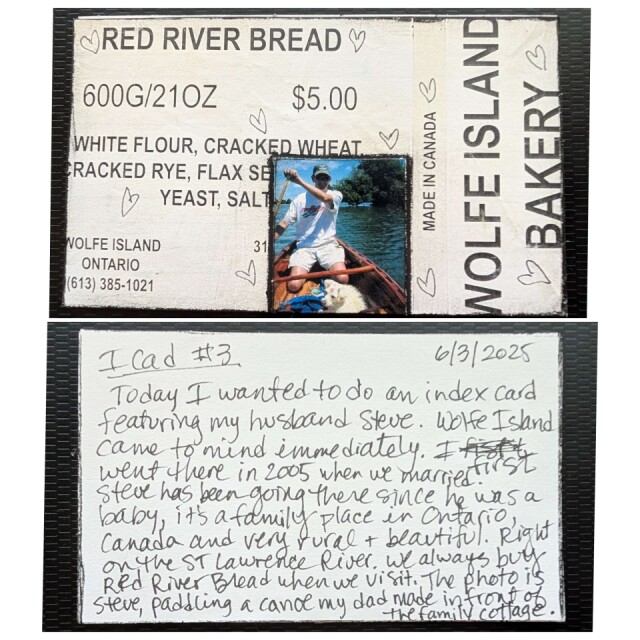 RED RIVER BREAD
600G/21OZ $5.00
WHITE FLOUR, CRACKED WHEAT,
CRACKED RYE, FLAX SE
YEAST, SALT
WOLFE ISLAND 31
ONTARIO
(613) 385-1021
MADE IN CANADA
WOLFE ISLAND
BAKERY
I cad #3 6/3/2025
Today I wanted to do an index card
featuring my husband Steve. Wolfe Island
came to mind immediately. I first
went there in 2005 when we married.
Steve has been going there since he was a
baby, it's a family place in Ontario,
Canada and very rural + beautiful. Right
on the ST Lawrence River. We always buy
Red River Bread when we visit. The photo is
Steve, paddling a canoe my dad made in front of
the family cottage.